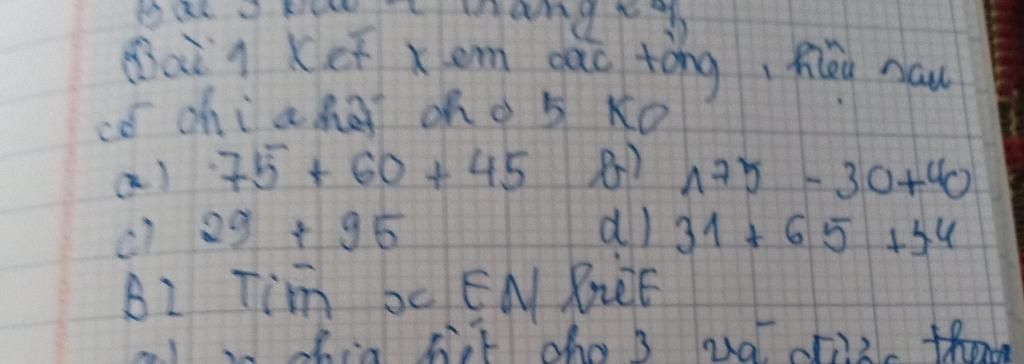 Bài 1 Xét xem các tổng, hiệu sau
có chia hết cho 5 ko
a) 75 + 60 + 45 b) 175 - 30+40
c) 29 + 95 d) 31 + 65 + 54
B2 Tìm x EN biết
chia hết cho 3 và